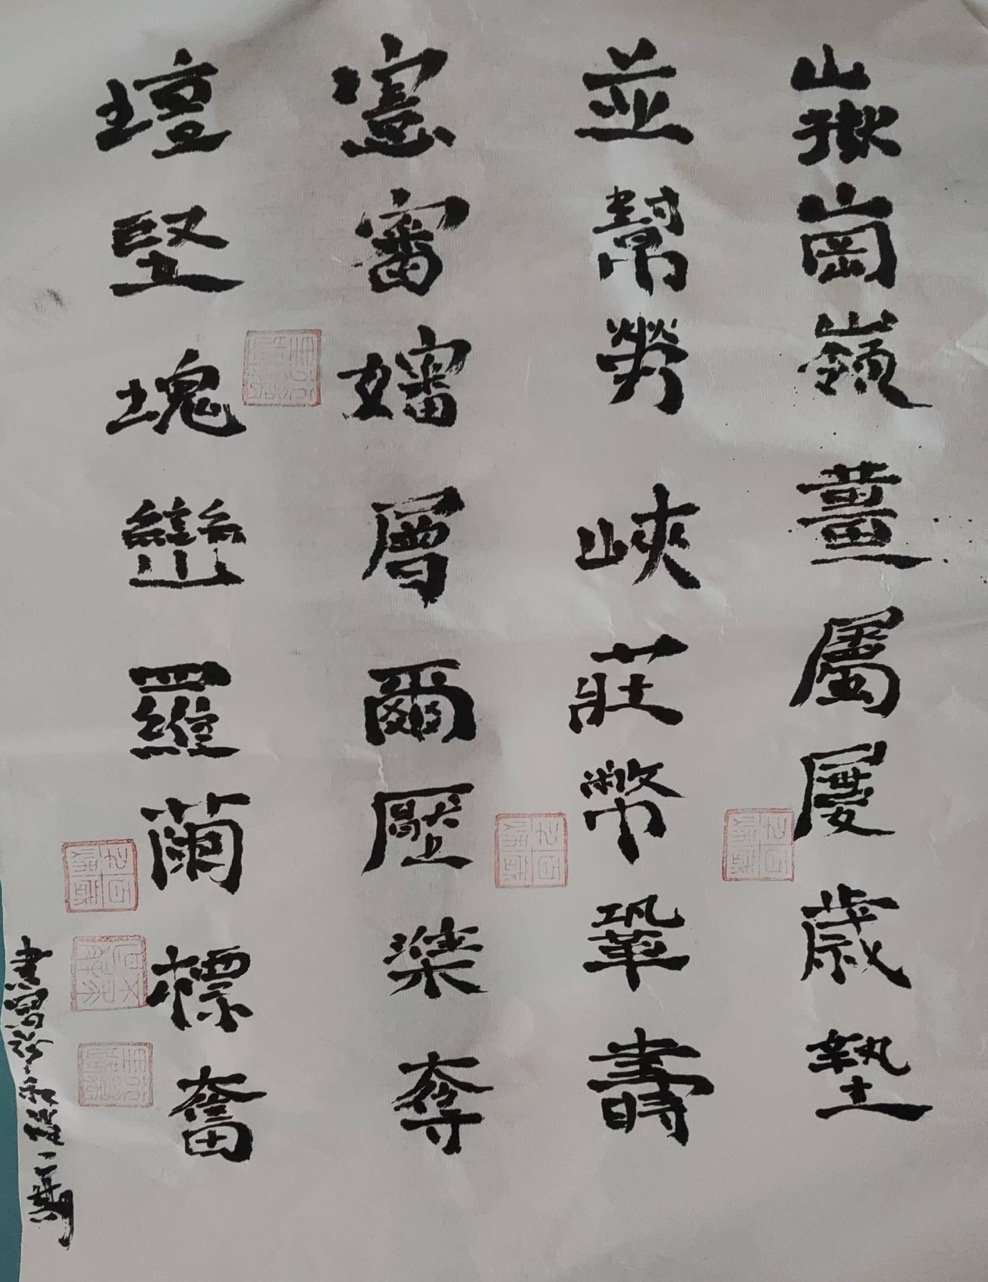 嶽崗嶺薑屬屢歲墊
並幫勞峽莊幣鞏壽
憲審嬸層爾壓桀奪
壇堅塊巒羅蘭標奮